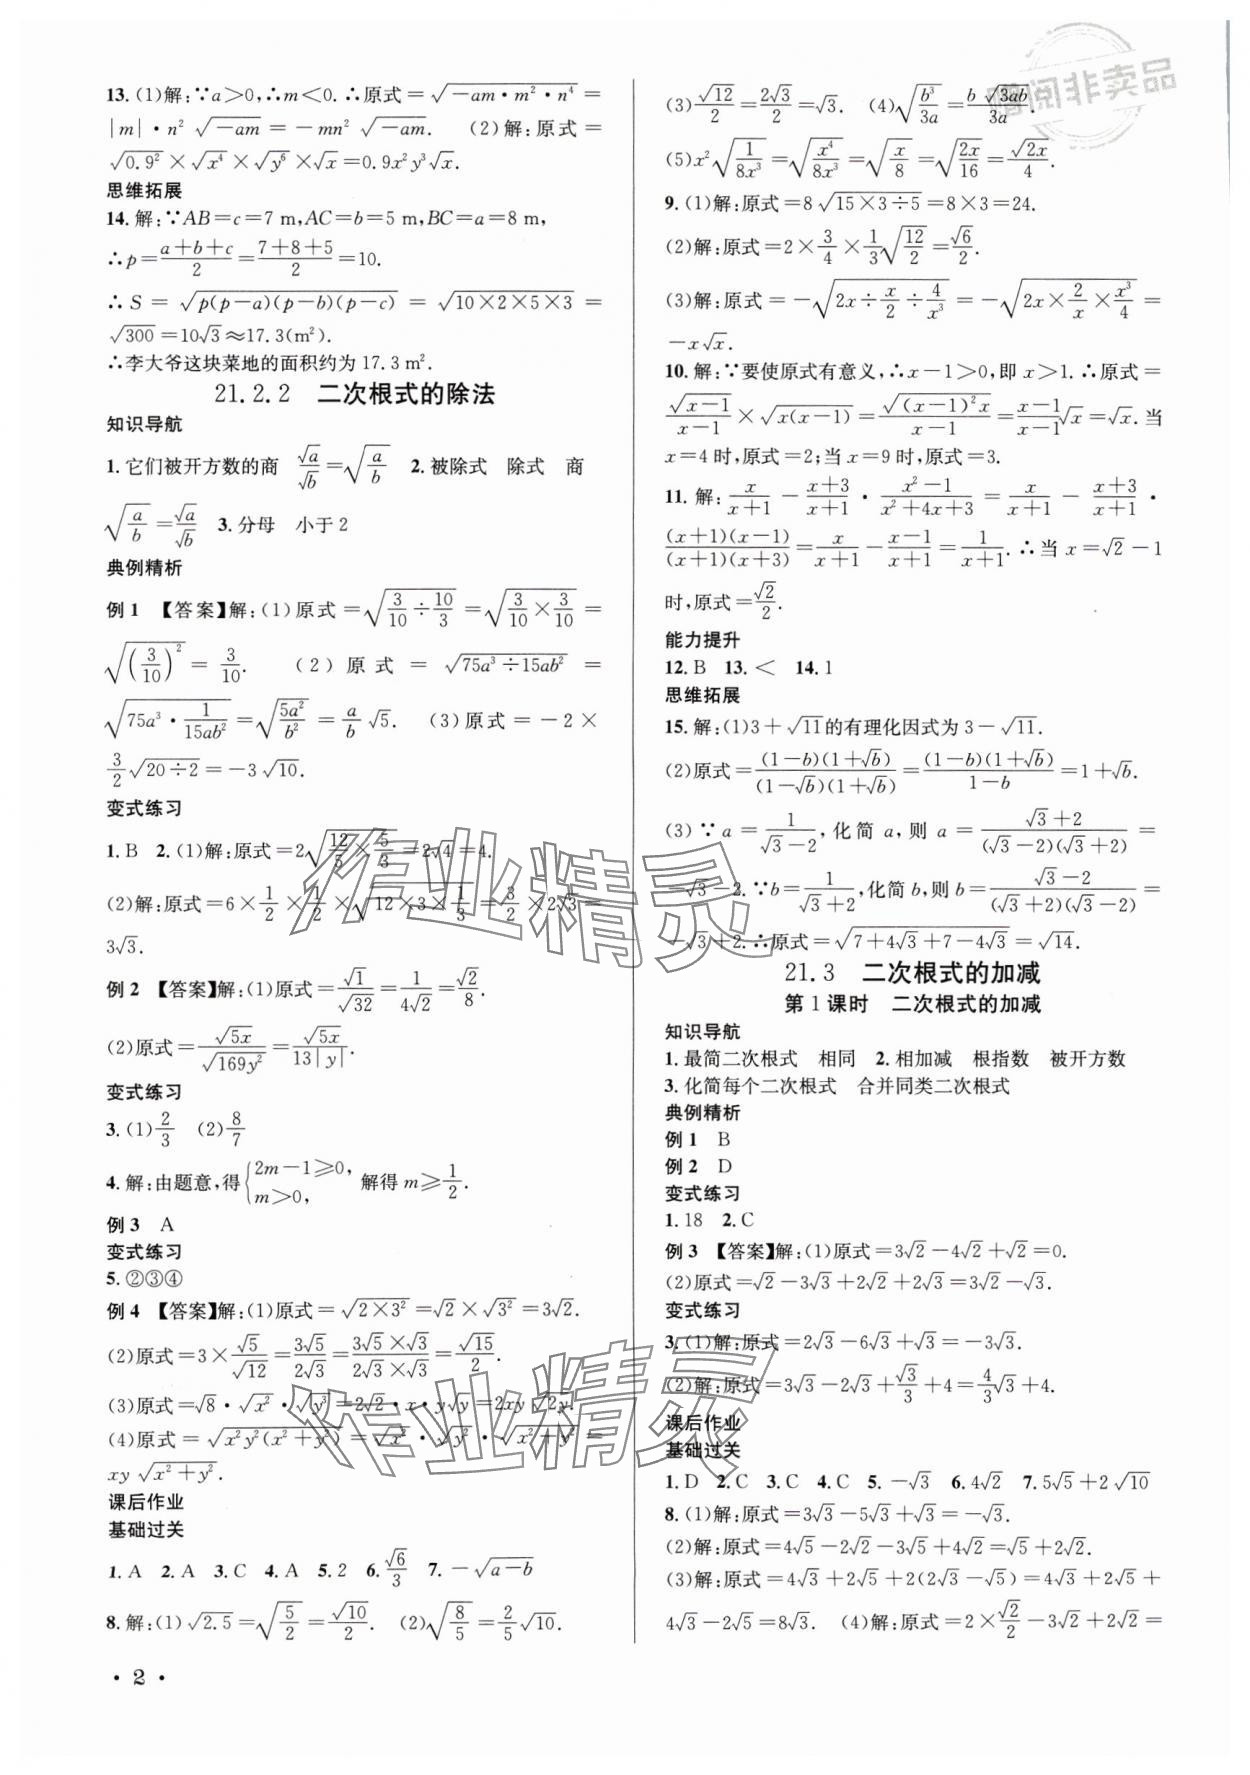 13. (1)解:∵a>0,∴m<0. ∴原式=√(-am·m²·n⁴)=
|m|·n² √(-am)=-mn² √(-am). (2)解:原式=
√(0.9²)×√(x⁴)×√(y⁶)×√x=0.9x²y³√x.
思维拓展
14. 解:∵AB=c=7 m,AC=b=5 m,BC=a=8 m,
∴p=(a+b+c)/2=(7+8+5)/2=10.
∴S=√(p(p-a)(p-b)(p-c))=√(10×2×5×3)=
√300=10√3≈17.3(m²).
∴李大爷这块菜地的面积约为 17.3 m².
21.2.2 二次根式的除法
知识导航
1. 它们被开方数的商 √a/√b=√(a/b) 2. 被除式 除式 商
√(a/b)=√a/√b 3. 分母 小于 2
典例精析
例 1 【答案】解:(1)原式=√(3/10÷10/3)=√(3/10×3/10)=
√((3/10)²)=3/10. (2)原式=√(75a³÷15ab²)=
√(75a³·1/(15ab²))=√(5a²/b²)=a/b √5. (3)原式=-2×
3/2√(20÷2)=-3√10.
变式练习
1. B 2. (1)解:原式=2√(12/5×5/3)=2√4=4.
(2)解:原式=6×1/2×1/2×√(12×3×1/3)=3/2×2√3=
3√3.
例 2 【答案】解:(1)原式=√1/√32=1/(4√2)=√2/8.
(2)原式=√(5x)/√(169y²)=√(5x)/(13|y|).
变式练习
3. (1)2/3 (2)8/7
4. 解:由题意,得{2m-1≥0, m>0, 解得 m≥1/2.
例 3 A
变式练习
5. ②③④
例 4 【答案】解:(1)原式=√(2×3²)=√2×√(3²)=3√2.
(2)原式=3×√5/√12=3√5/(2√3)=(3√5×√3)/(2√3×√3)=√15/2.
(3)原式=√8·√(x²)·√(y³)=2√2·x·y√y=2xy√(2y).
(4)原式=√(x²y²(x²+y²))=√(x²)·√(y²)·√(x²+y²)=
xy √(x²+y²).
课后作业
基础过关
1. A 2. A 3. C 4. A 5. 2 6. √6/3 7. -√(a-b)
8. 解:(1)√2.5=√(5/2)=√10/2. (2)√(8/5)=2/5√10.
· 2 ·
(3)√12/2=2√3/2=√3. (4)√(b³/3a)=b√(3ab)/3a.
(5)x²√(1/(8x³))=√(x⁴/(8x³))=√(x/8)=√(2x/16)=√(2x)/4.
9. (1)解:原式=8√(15×3÷5)=8×3=24.
(2)解:原式=2×3/4×1/3√(12/2)=√6/2.
(3)解:原式=-√(2x÷x/2÷4/x³)=-√(2x×2/x×x³/4)=
-x√x.
10. 解:∵要使原式有意义,∴x-1>0,即 x>1. ∴原式=
√(x-1)/(x-1)×√(x(x-1))=√((x-1)²x)/(x-1)=(x-1)/(x-1)√x=√x. 当
x=4 时,原式=2;当 x=9 时,原式=3.
11. 解:x/(x+1)-(x+3)/(x+1)·(x²-1)/(x²+4x+3)=x/(x+1)-(x+3)/(x+1)·
(x+1)(x-1)/(x+1)(x+3)=x/(x+1)-(x-1)/(x+1)=1/(x+1). ∴当 x=√2-1
时,原式=√2/2.
能力提升
12. B 13. < 14. 1
思维拓展
15. 解:(1)3+√11的有理化因式为 3-√11.
(2)原式=(1-b)(1+√b)/(1-√b)(1+√b)=(1-b)(1+√b)/(1-b)=1+√b.
(3)∵a=1/(√3-2),化简 a,则 a=(√3+2)/((√3-2)(√3+2))=
-√3-2. ∵b=1/(√3+2),化简 b,则 b=(√3-2)/((√3+2)(√3-2))=
-√3+2. ∴原式=√(7+4√3+7-4√3)=√14.
21.3 二次根式的加减
第 1 课时 二次根式的加减
知识导航
1. 最简二次根式 相同 2. 相加减 根指数 被开方数
3. 化简每个二次根式 合并同类二次根式
典例精析
例 1 B
例 2 D
变式练习
1. 18 2. C
例 3 【答案】解:(1)原式=3√2-4√2+√2=0.
(2)原式=√2-3√3+2√2+2√3=3√2-√3.
变式练习
3. (1)解:原式=2√3-6√3+√3=-3√3.
(2)解:原式=3√3-2√3+√3/3+4=4/3√3+4.
课后作业
基础过关
1. D 2. C 3. C 4. C 5. -√3 6. 4√2 7. 5√5+2√10
8. (1)解:原式=3√3-5√3+√3=-√3.
(2)解:原式=4√5-2√2-3√5+4√2=√5+2√2.
(3)解:原式=4√3+2√5+2(2√3-√5)=4√3+2√5+
4√3-2√5=8√3. (4)解:原式=2×√2/2-3√2+2√2=
作业精灵
作业精灵
非卖品